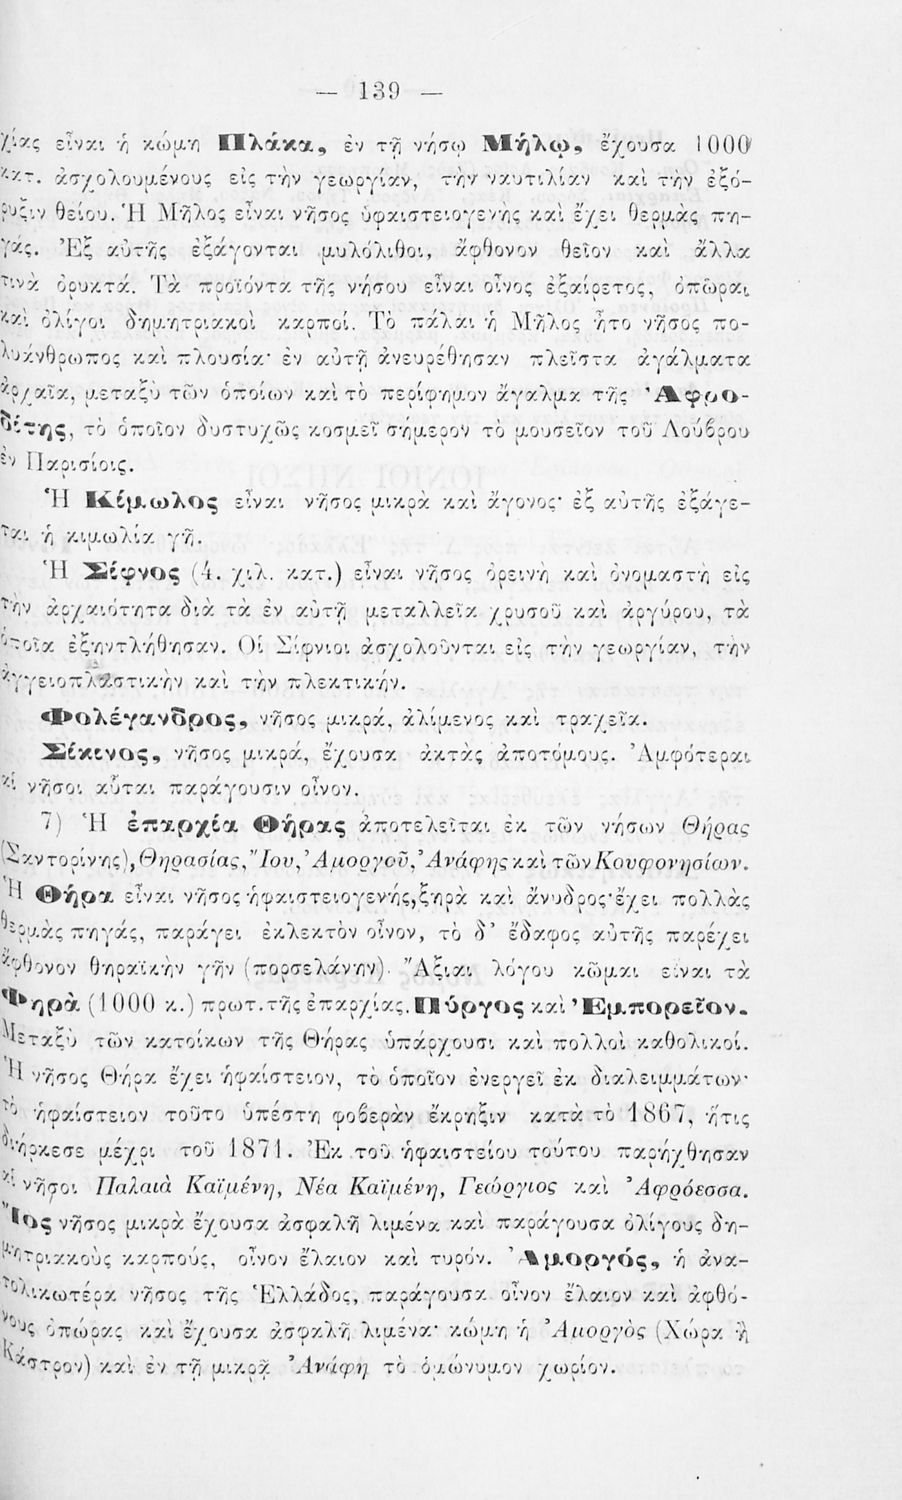 — 139 —
χίας εἶναι ἡ κώμη Πλάκα, ἐν τῇ νήσῳ Μήλῳ, ἔχουσα 1000
κατ. ἀσχολουμένους εἰς τὴν γεωργίαν, τὴν ναυτιλίαν καὶ τὴν ἐξό-
ρυξιν θείου. Ἡ Μῆλος εἶναι νῆσος ὑφαιστειογενὴς καὶ ἔχει θερμὰς πη-
γάς. Ἐξ αὐτῆς ἐξάγονται μυλόλιθοι, ἄφθονον θεῖον καὶ ἄλλα
τινὰ ὀρυκτά. Τὰ προϊόντα τῆς νήσου εἶναι οἶνος ἐξαίρετος, ὀπῶραι
καὶ ὀλίγοι δημητριακοὶ καρποί. Τὸ πάλαι ἡ Μῆλος ἦτο νῆσος πο-
λυάνθρωπος καὶ πλουσία· ἐν αὐτῇ ἀνευρέθησαν πλεῖστα ἀγάλματα
ἀρχαῖα, μεταξὺ τῶν ὁποίων καὶ τὸ περίφημον ἄγαλμα τῆς Ἀφρο-
δίτης, τὸ ὁποῖον δυστυχῶς κοσμεῖ σήμερον τὸ μουσεῖον τοῦ Λούβρου
ἐν Παρισίοις.
Ἡ Κίμωλος εἶναι νῆσος μικρὰ καὶ ἄγονος· ἐξ αὐτῆς ἐξάγε-
ται ἡ κιμωλία γῆ.
Ἡ Σίφνος (4. χιλ. κατ.) εἶναι νῆσος ὀρεινὴ καὶ ὀνομαστὴ εἰς
τὴν ἀρχαιότητα διὰ τὰ ἐν αὐτῇ μεταλλεῖα χρυσοῦ καὶ ἀργύρου, τὰ
ὁποῖα ἐξηντλήθησαν. Οἱ Σίφνιοι ἀσχολοῦνται εἰς τὴν γεωργίαν, τὴν
ἀγγειοπλαστικὴν καὶ τὴν πλεκτικήν.
Φολέγανδρος, νῆσος μικρά, ἀλίμενος καὶ τραχεῖα.
Σίκινος, νῆσος μικρά, ἔχουσα ἀκτὰς ἀποτόμους. Ἀμφότεραι
αἱ νῆσοι αὗται παράγουσιν οἶνον.
7) Ἡ ἐπαρχία Θήρας ἀποτελεῖται ἐκ τῶν νήσων Θήρας
(Σαντορίνης), Θηρασίας, Ἴου, Ἀμοργοῦ, Ἀνάφης καὶ τῶν Κουφονησίων.
Ἡ Θήρα εἶναι νῆσος ἡφαιστειογενής, ξηρὰ καὶ ἄνυδρος· ἔχει πολλὰς
θερμὰς πηγάς, παράγει ἐκλεκτὸν οἶνον, τὸ δ' ἔδαφος αὐτῆς παρέχει
ἄφθονον θηραϊκὴν γῆν (πορσελάνην). Ἄξιαι λόγου κῶμαι εἶναι τὰ
Φηρὰ (1000 κ.) πρωτ. τῆς ἐπαρχίας. Πύργος καὶ Ἐμπορεῖον.
Μεταξὺ τῶν κατοίκων τῆς Θήρας ὑπάρχουσι καὶ πολλοὶ καθολικοί.
Ἡ νῆσος Θήρα ἔχει ἡφαίστειον, τὸ ὁποῖον ἐνεργεῖ ἐκ διαλειμμάτων·
τὸ ἡφαίστειον τοῦτο ὑπέστη φοβερὰν ἔκρηξιν κατὰ τὸ 1867, ἥτις
διήρκεσε μέχρι τοῦ 1871. Ἐκ τοῦ ἡφαιστείου τούτου παρήχθησαν
αἱ νῆσοι Παλαιὰ Καϊμένη, Νέα Καϊμένη, Γεώργιος καὶ Ἀφρόεσσα.
Ἴος νῆσος μικρὰ ἔχουσα ἀσφαλῆ λιμένα καὶ παράγουσα ὀλίγους δη-
μητριακοὺς καρπούς, οἶνον ἔλαιον καὶ τυρόν. Ἀμοργός, ἡ ἀνα-
τολικωτέρα νῆσος τῆς Ἑλλάδος, παράγουσα οἶνον ἔλαιον καὶ ἀφθό-
νους ὀπώρας καὶ ἔχουσα ἀσφαλῆ λιμένα· κώμη ἡ Ἀμοργὸς (Χώρα ἢ
Κάστρον) καὶ ἐν τῇ μικρᾷ Ἀνάφῃ τὸ ὁμώνυμον χωρίον.